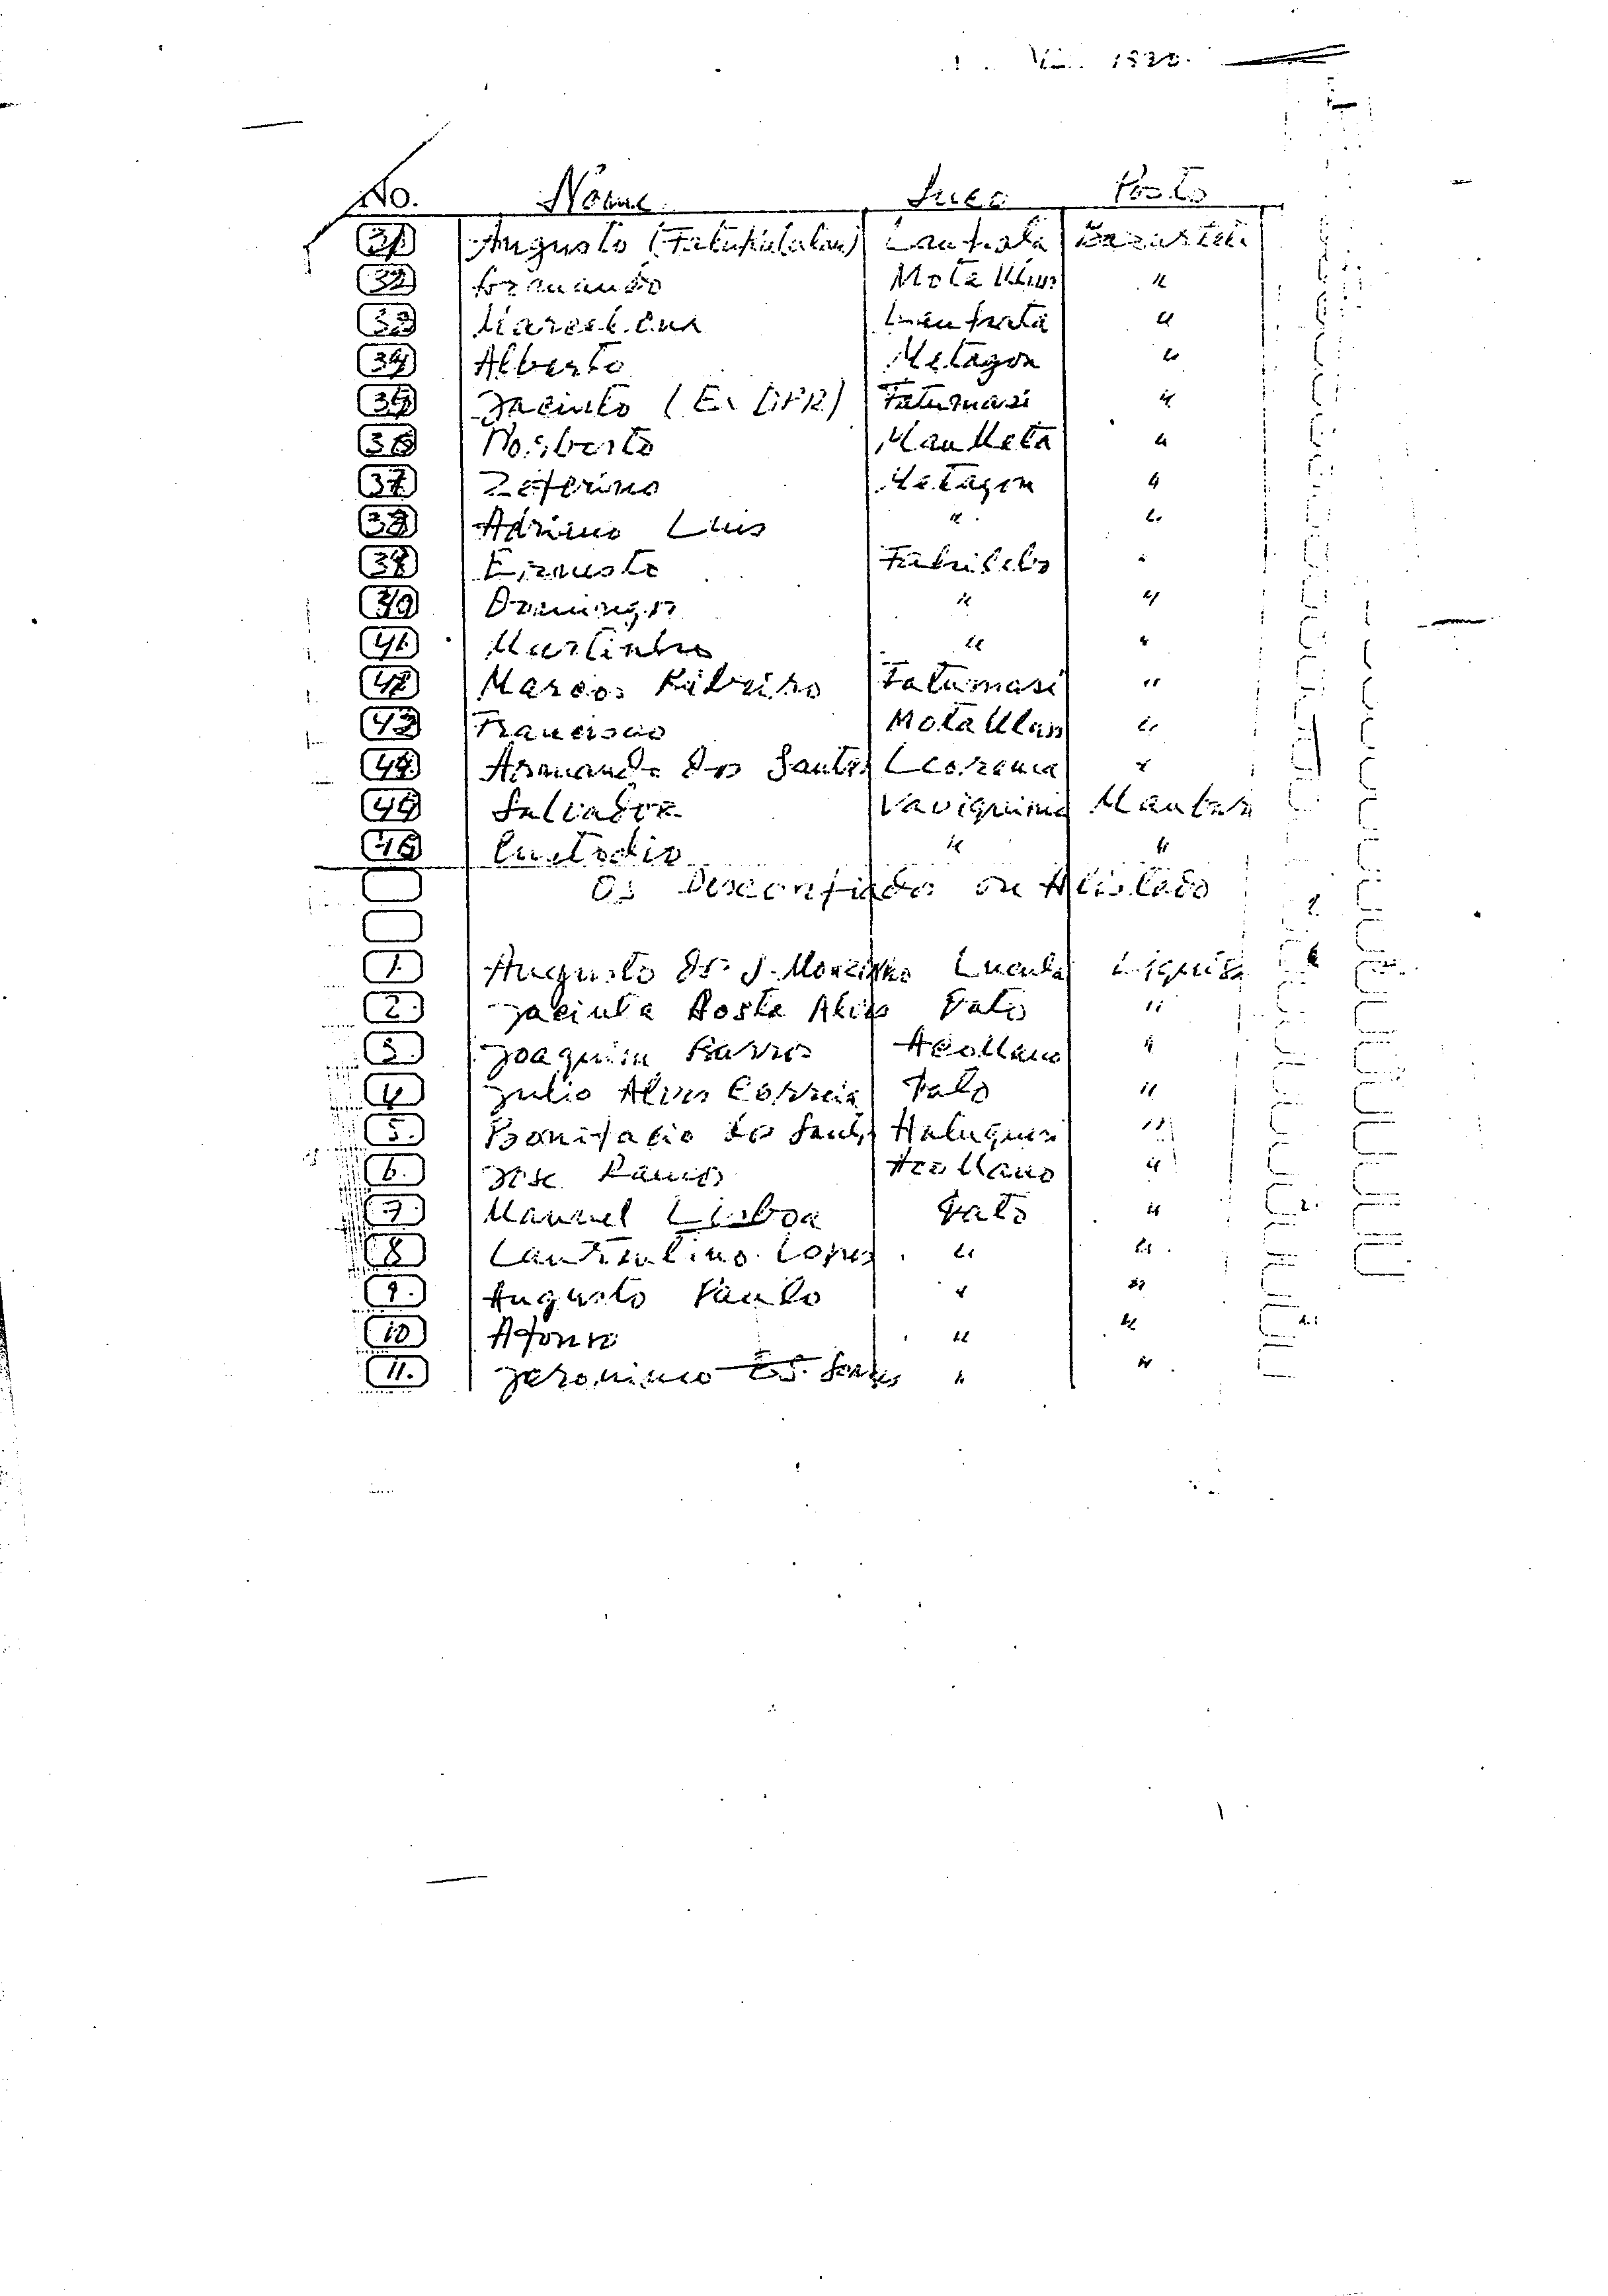 No. Nome Suco Posto
31 Augusto (Fatukulalan) Lauhata Bazartete
32 Fernando Mota Ulun "
33 Lauhata "
34 Alberto Metagou "
35 Jacinto (Ex Fatumasi "
36 Norberto Mau Meta "
37 Zeferino Metagou "
38 Adriano Luis " "
39 Ernesto "
40 Domingos " "
41 Martinho " "
42 Marcos Ribeiro Fatumasi "
43 Francisco Mota Ulun "
44 Armando dos Santos Leorema "
45 Salvador Vaviquinia Maubara
46 Custodio " "
Os Desconfiado ou Alistado
1. Augusto dos S. Liquiça
2. Jacinta Costa Alves Dato "
3. Joaquim Acollano "
4 Julio Alves Correia Dato "
5. Bonifacio dos Santos "
6. Jose Acollano "
7. Manuel Lisboa Dato "
8 Lopes " "
9. Augusto Paulo " "
10 Afonso " "
11. Jeronimo dos Santos " "